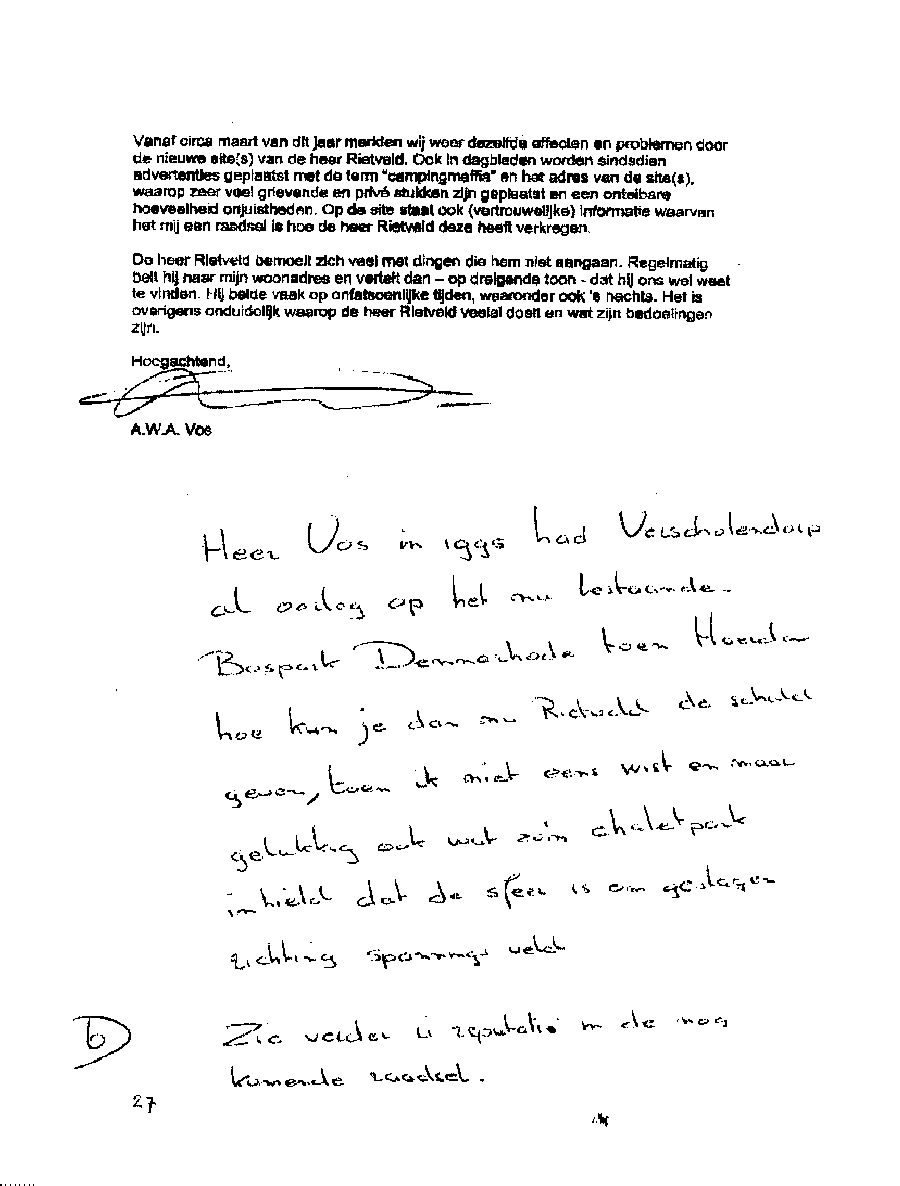 Vanaf circa maart van dit jaar merkten wij weer dezelfde effecten en problemen door
de nieuwe site(s) van de heer Rietveld. Ook in dagbladen worden sindsdien
advertenties geplaatst met de term "campingmaffia" en het adres van de site(s),
waarop zeer veel grievende en privé stukken zijn geplaatst en een ontelbare
hoeveelheid onjuistheden. Op de site staat ook (vertrouwelijke) informatie waarvan
het mij een raadsel is hoe de heer Rietveld deze heeft verkregen.
De heer Rietveld bemoeit zich veel met dingen die hem niet aangaan. Regelmatig
belt hij naar mijn woonadres en vertelt dan – op dreigende toon - dat hij ons wel weet
te vinden. Hij belde vaak op onfatsoenlijke tijden, waaronder ook 's nachts. Het is
overigens onduidelijk waarop de heer Rietveld veelal doelt en wat zijn bedoelingen
zijn.
Hoogachtend,
A.W.A. Vos
Heer Vos in 1995 had Verscholendorp
al oorlog op het nu bestaande
Bospark Dennerhode toen
hoe kun je dan nu Rietveld de schuld
geven, toen ik niet eens wist en maar
gelukkig ook wat zo'n chaletpark
inhield dat de sfeer is om geslagen
richting spannings veld
b Zie verder u reputatie in de nog
komende raadsel.
27